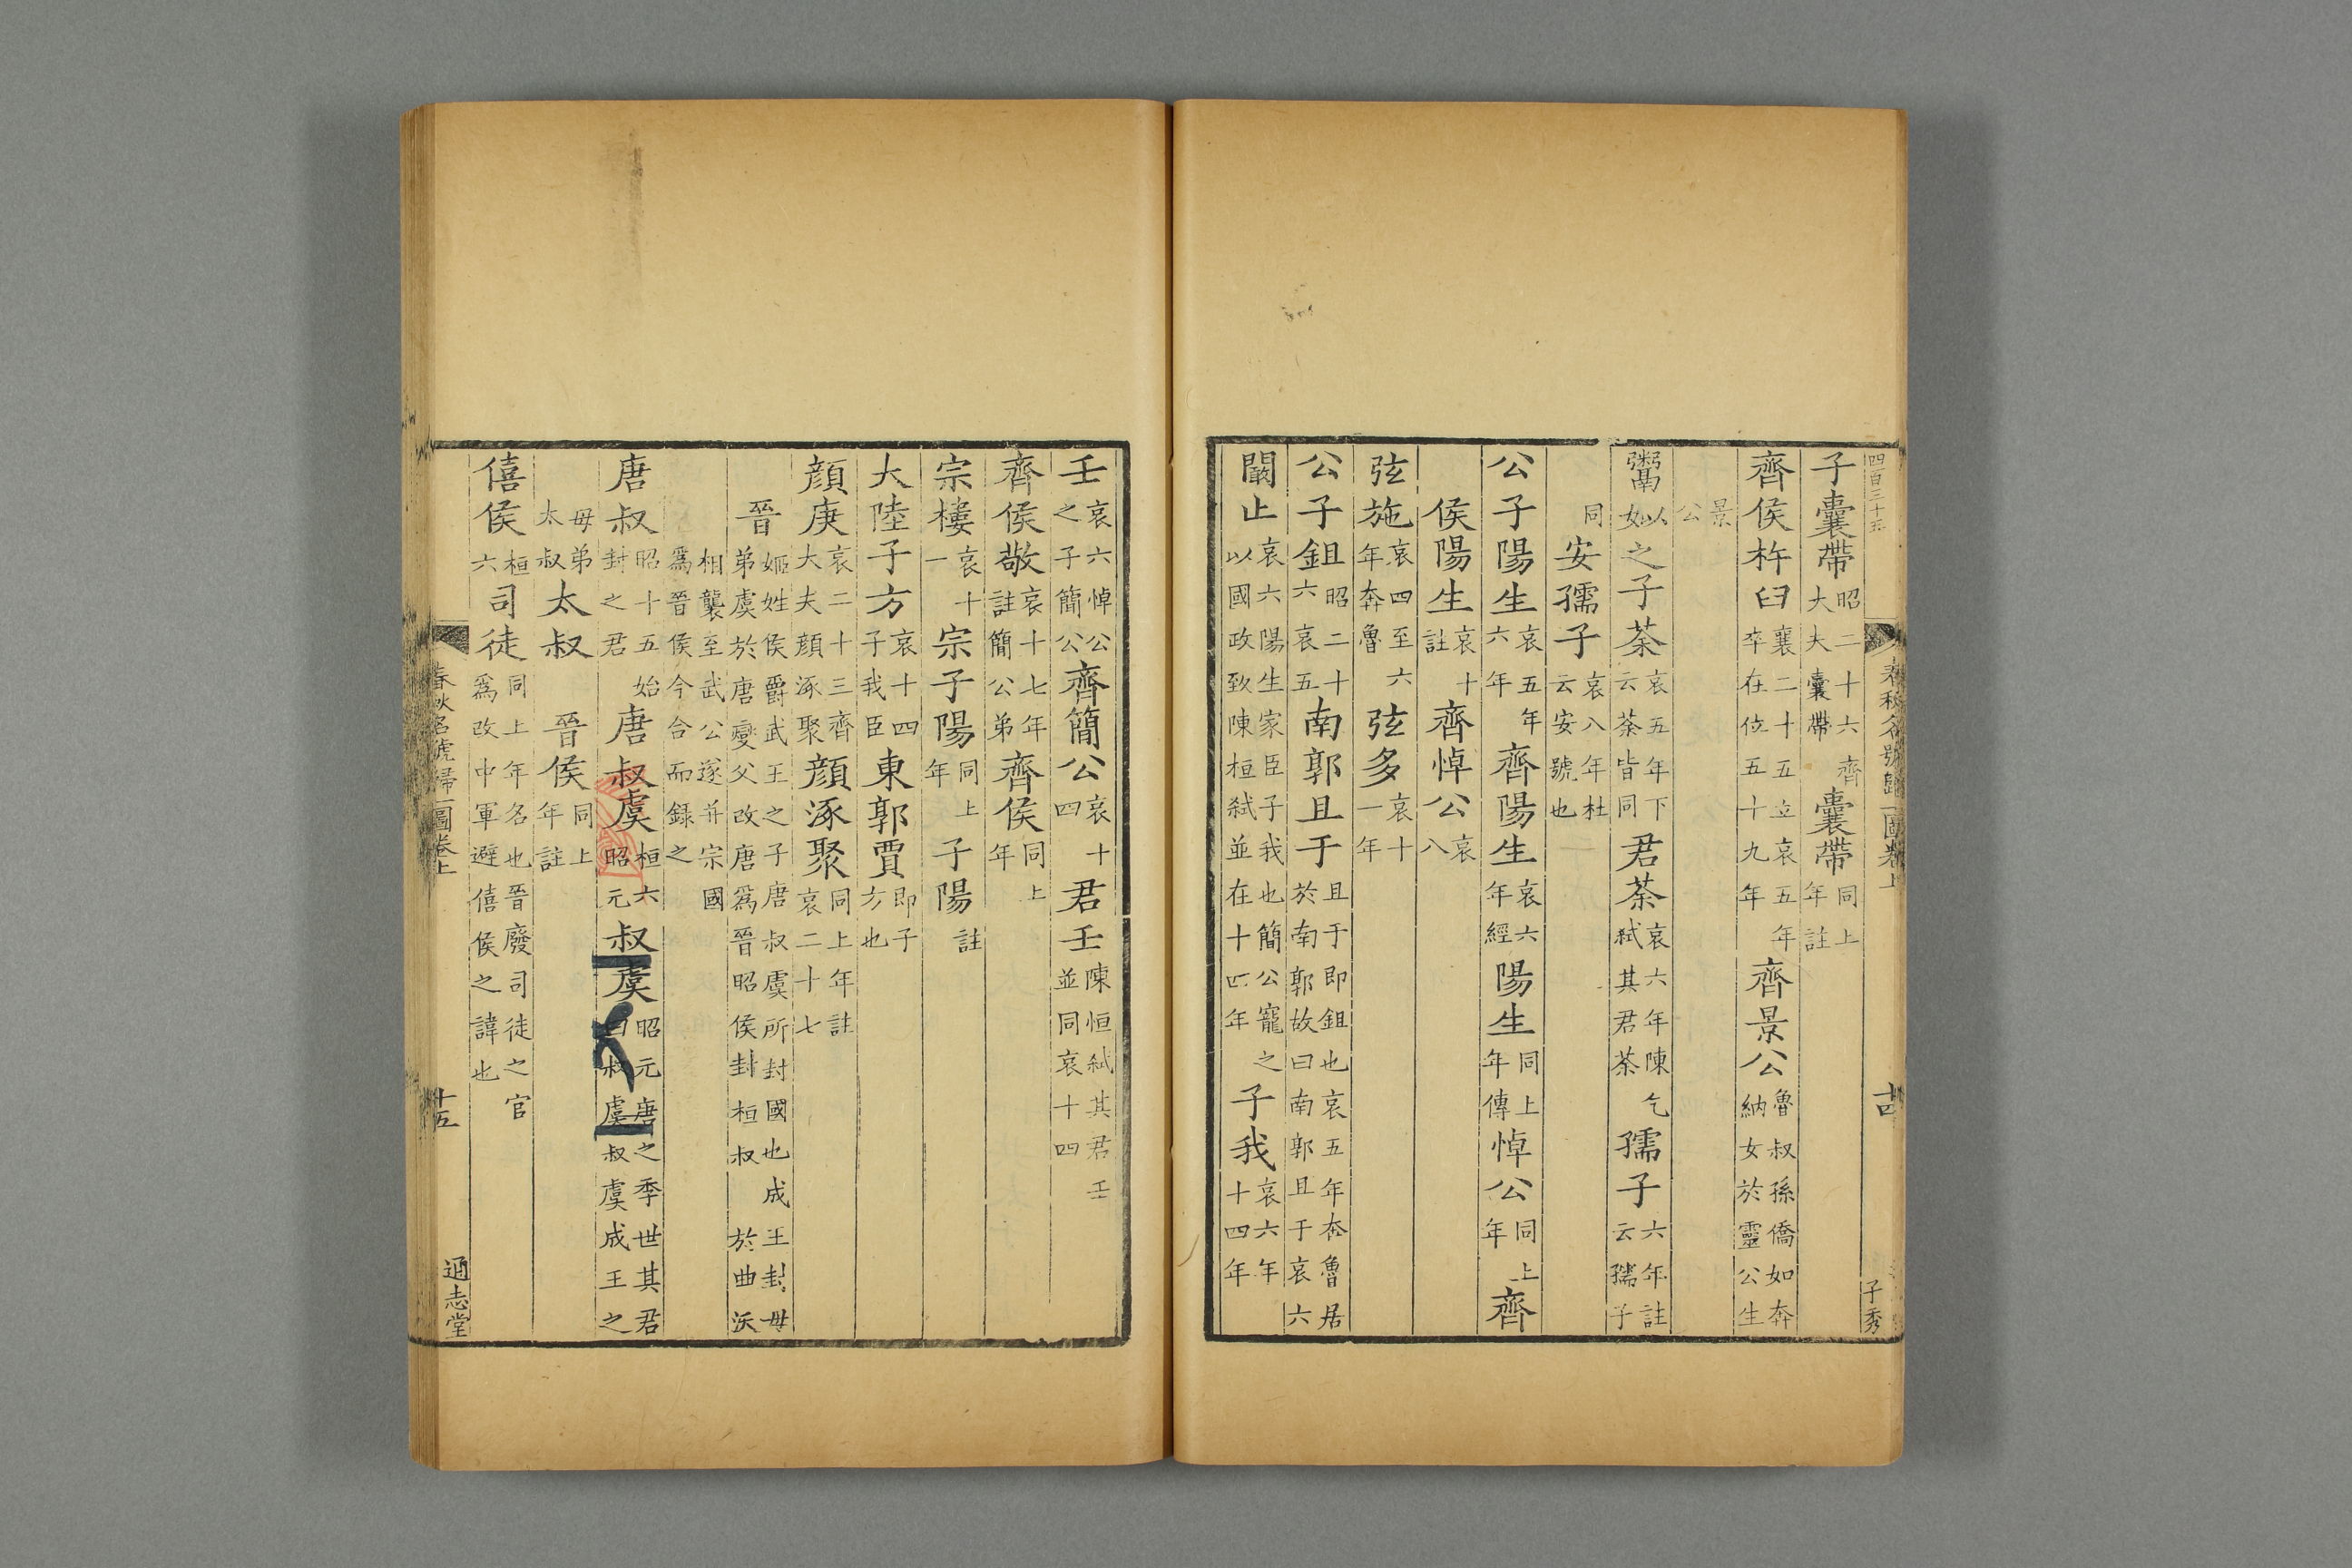 四百三十五
春秋名號歸一圖卷上
十四
子秀
子囊帶昭二十六齊大夫囊帶囊帶同上年註
齊侯杵臼襄二十五立哀五年卒在位五十九年齊景公魯叔孫僑如奔納女於靈公生
景公
鬻姒以之子荼哀五年下云荼皆同君荼哀六年陳乞弑其君荼孺子六年註云孺子
同安孺子哀八年杜云安號也
公子陽生哀五年六年齊陽生哀六年經陽生同上年傳悼公同上年齊
侯陽生哀十註齊悼公哀八
弦施哀四至六年奔魯弦多哀十一年
公子鉏昭二十六哀五南郭且于且于即鉏也哀五年奔魯居於南郭故曰南郭且于哀六
闞止哀六陽生家臣子我也簡公寵之以國政致陳桓弑並在十四年子我哀六年十四年
壬哀六悼公之子簡公齊簡公哀十四君壬陳恒弑其君壬並同哀十四
齊侯敬哀十七年註簡公弟齊侯同上年
宗樓哀十一宗子陽同上年子陽註
大陸子方哀十四子我臣東郭賈即子方也
顏庚哀二十三齊大夫顏涿聚顏涿聚同上年註哀二十七
晉姬姓侯爵武王之子唐叔虞所封國也成王封母弟虞於唐變父改唐為晉昭侯封桓叔於曲沃
相襲至武公遂并宗國為晉侯今合而録之
唐叔昭十五始封之君唐叔虞桓六昭元叔虞昭元唐之季世其君曰叔虞叔虞成王之
母弟太叔太叔晉侯同上年註
僖侯桓六司徒同上年名也晉廢司徒之官為改中軍避僖侯之諱也
春秋名號歸一圖卷上
十五
通志堂